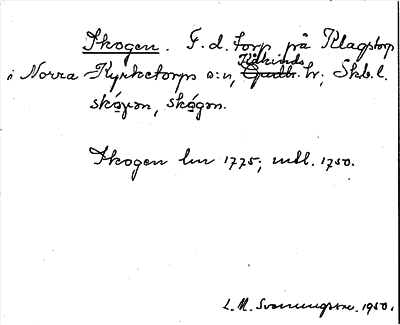 Skogen. F. d. torp på Klagstorp
Kåkinds
i Norra Kyrketorps s:n, Gudh. hr, Skb. l.
skó̱γən, skó̱gən.
Skogen lm 1775; mtl. 1750.
L. M. Svenungsson. 1950.